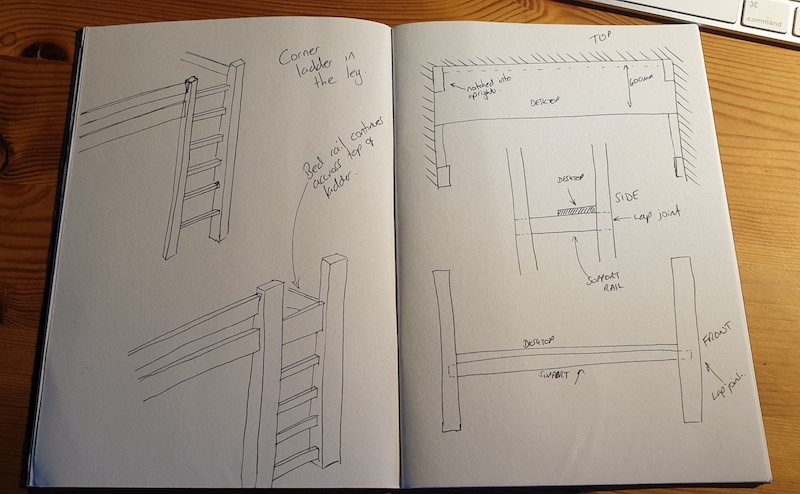 Corner
ladder in
the leg.
Bed rail continues
accross top of
ladder.
TOP
notched into
uprights.
600mm
DESKTOP
DESKTOP
SIDE
Lap joint
SUPPORT
RAIL
DESKTOP
SUPPORT
FRONT
Lap joint.
⌘
command